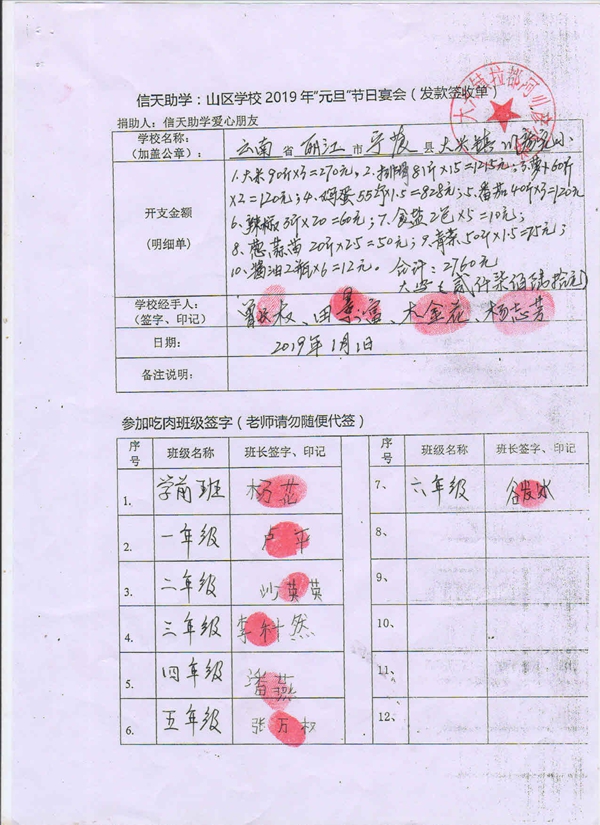 信天助学：山区学校2019年“元旦”节日宴会（发款签收单）
捐助人：信天助学爱心朋友
学校名称：
（加盖公章）：
云南省丽江市宁蒗县大兴镇
开支金额
（明细单）
1.大米90斤×3=270元,2.排骨81斤×15=1215元;3.萝卜60斤
×2=120元;4.鸡蛋552×1.5=828元;5.番茄40斤×3=120元
6、辣椒3斤×20=60元;7.食盐2包×5=10元;
8.葱蒜苗20斤×2.5=50元;9.青菜50斤×1.5=75元;
10、酱油2瓶×6=12元。合计:2760元
大写:贰仟柒佰陆拾元
学校经手人：
（签字、印记）
田景富、木金花、杨志芳
日期：
2019年1月1日
备注说明：
参加吃肉班级签字（老师请勿随便代签）
序号 班级名称 班长签字、印记 序号 班级名称 班长签字、印记
1. 学前班 杨花 7、 六年级 谷发冰
2. 一年级 卢平 8、
3. 二年级 沙英英 9、
4. 三年级 李科然 10、
5. 四年级 潘燕 11、
6. 五年级 张万权 12、